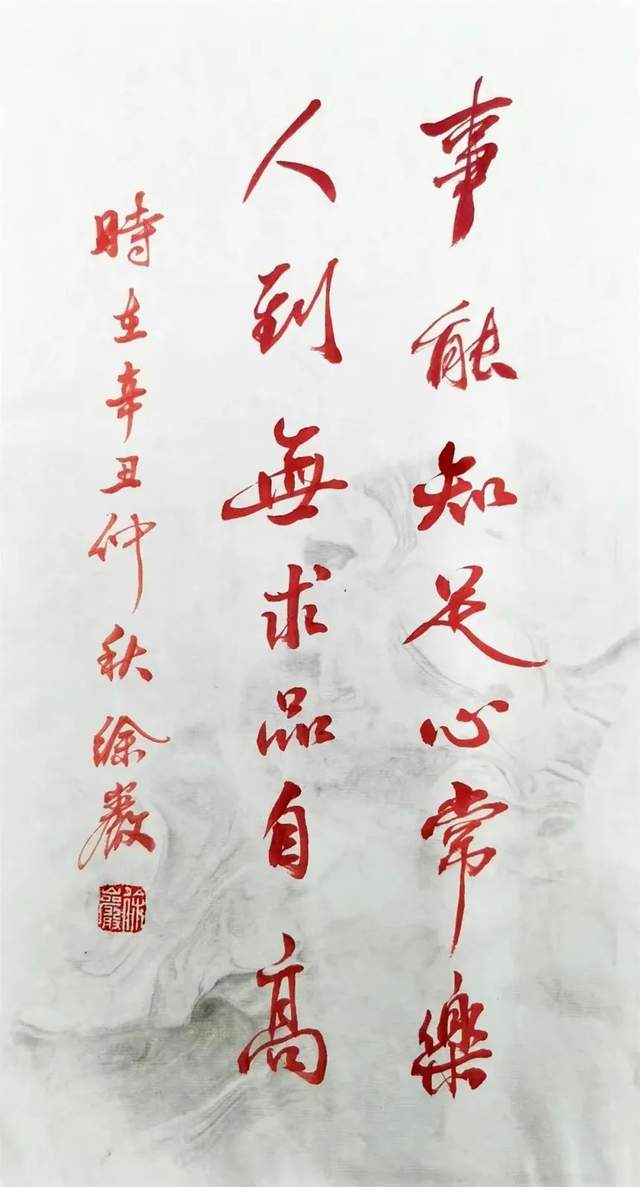 事能知足心常樂
人到無求品自高
時在辛丑仲秋徐嚴
徐嚴